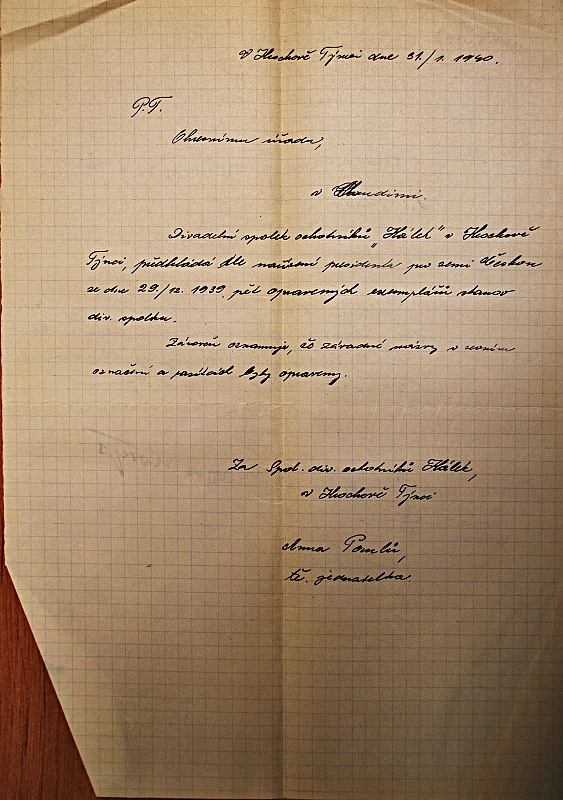 V Hrochově Týnci dne 31./1. 1940.
P.T.
Okresnímu úřadu,
v Chrudimi.
Divadelní spolek ochotníků „Hálek" v Hrochově
Týnci, předkládá dle nařízení presidenta pro zemi Českou
ze dne 29./12. 1939, pět opravených exemplářů stanov
div. spolku.
Zároveň oznamuje, že závadné názvy v
označení a razítcích byly opraveny.
Za Spol. div. ochotníků Hálek,
v Hrochově Týnci
Anna
tč. jednatelka.